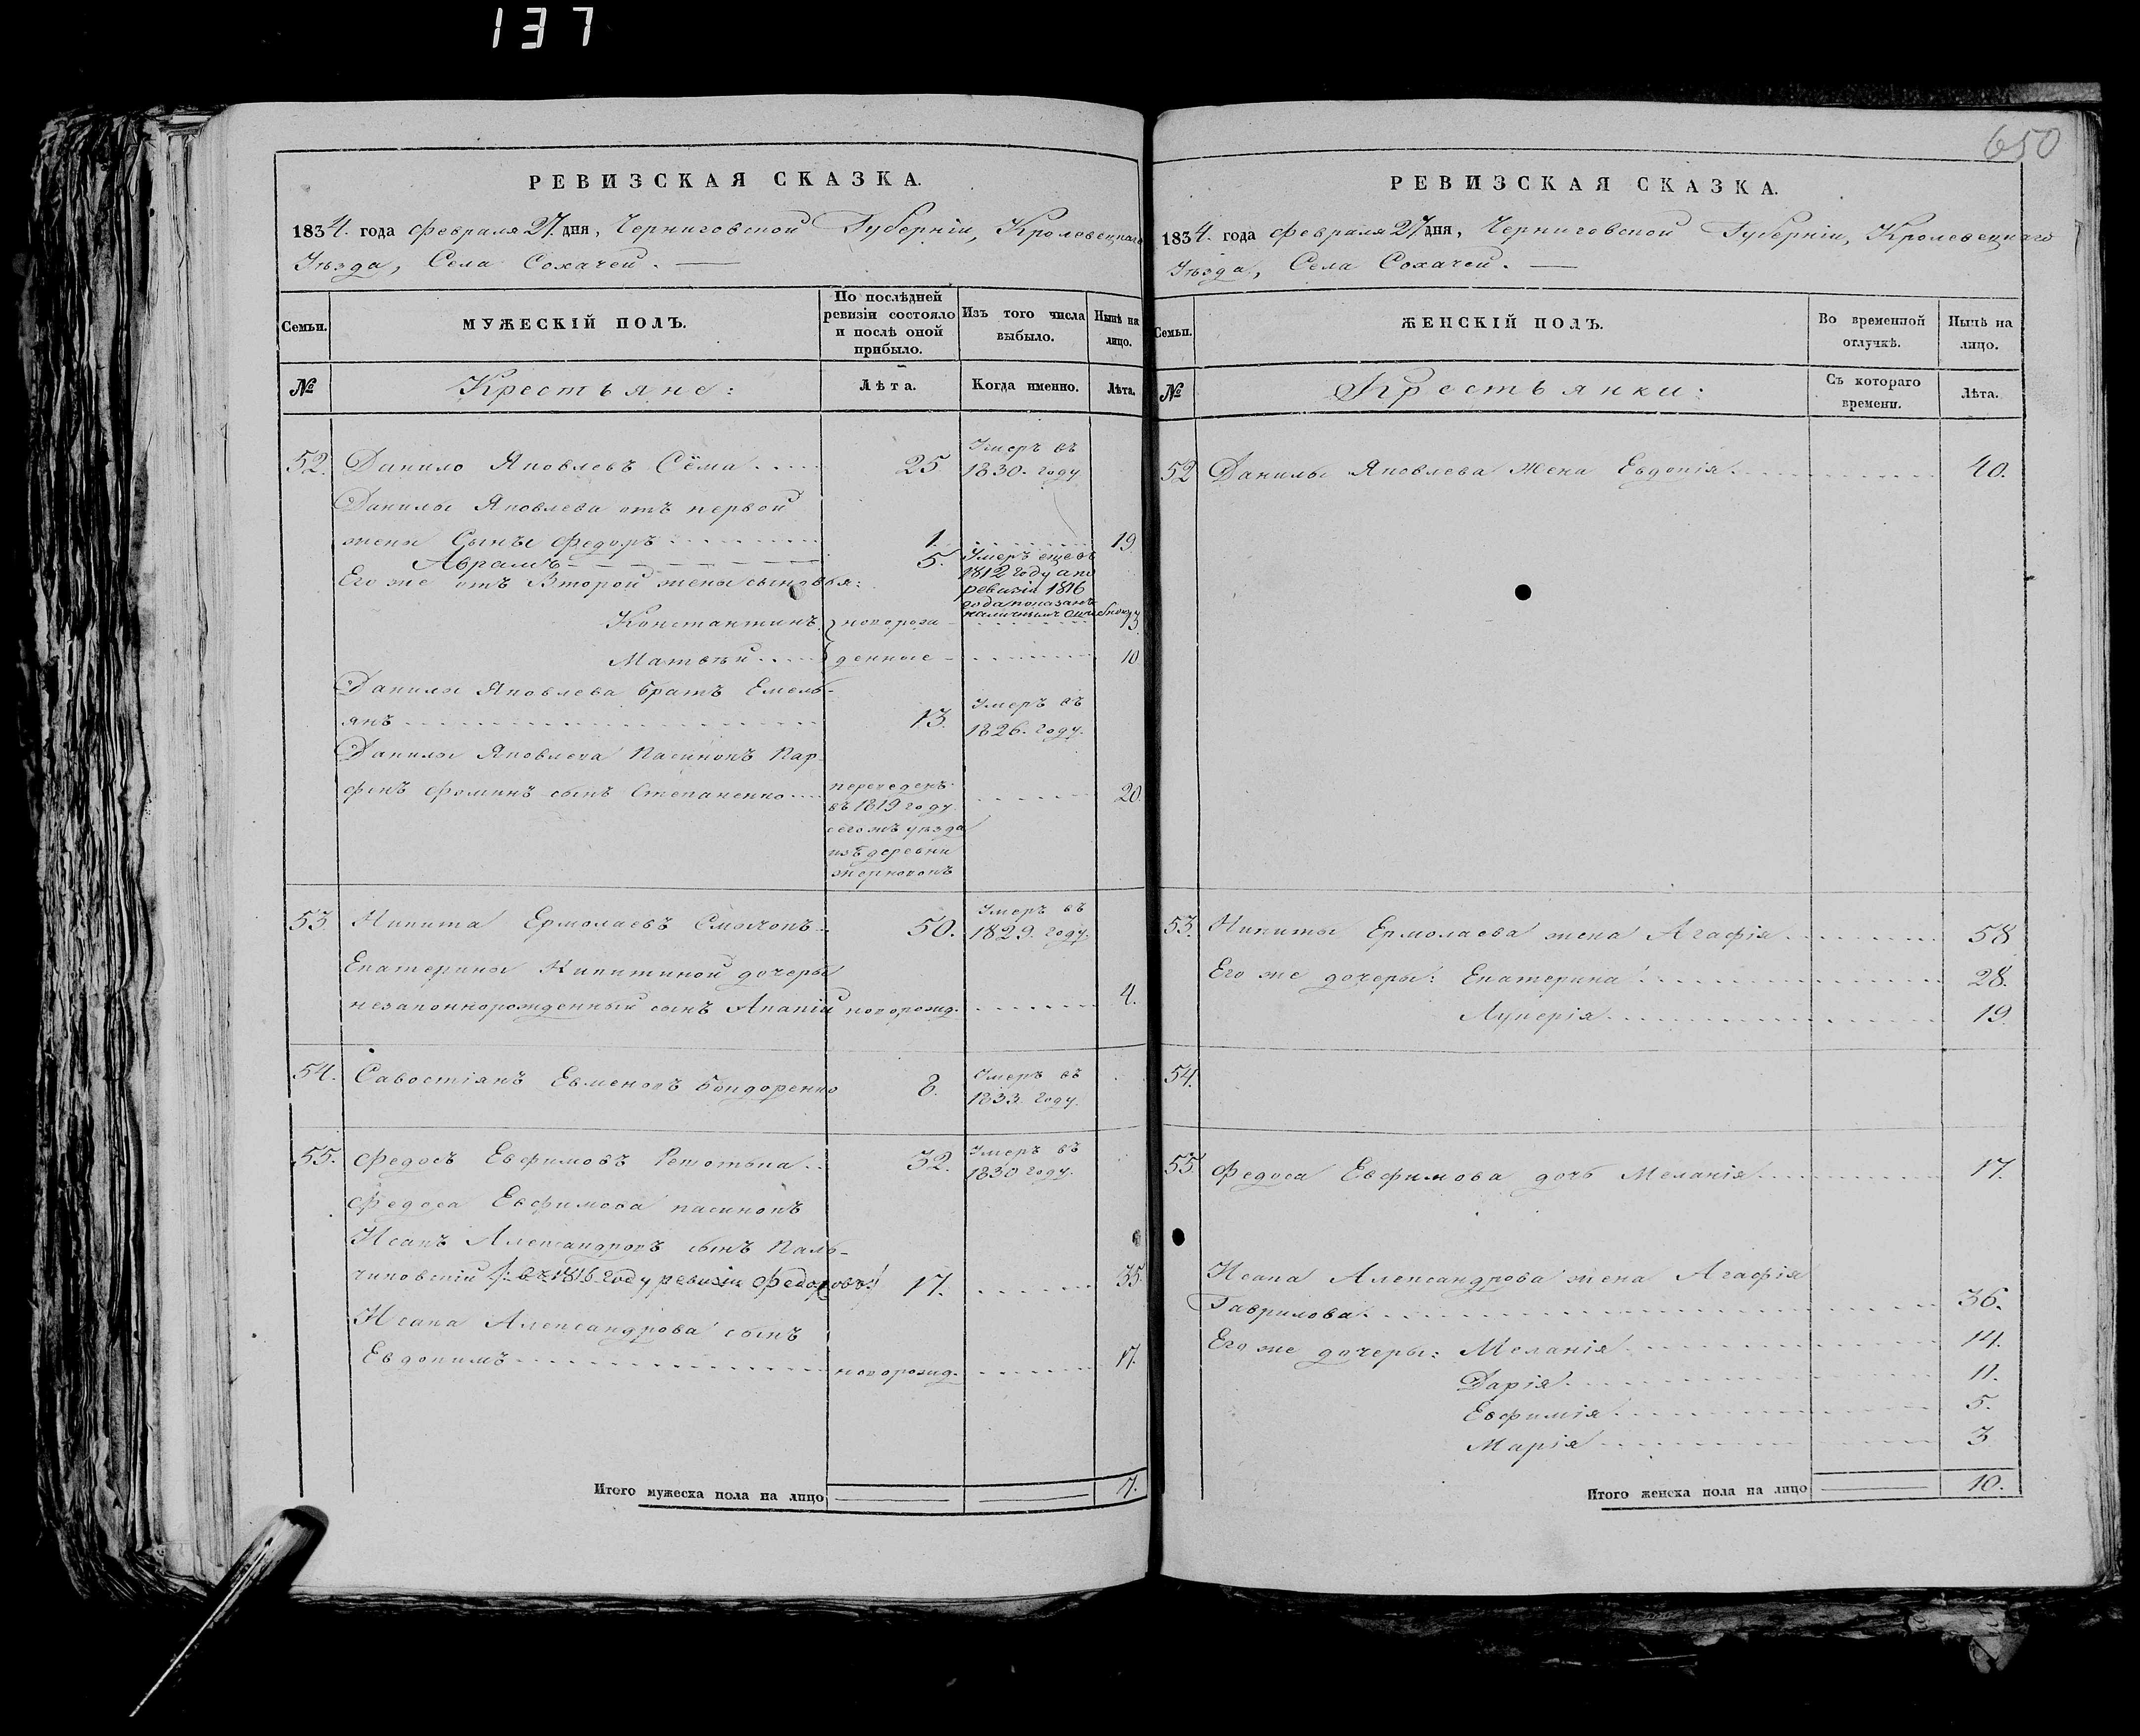 137
650
РЕВИЗСКАЯ СКАЗКА.
1834. года февраля 27. дня, Черниговской Губерніи, Кролевецкаго
Уѣзда, Села Сохачей.
Семьи.
МУЖЕСКІЙ ПОЛЪ.
По послѣдней ревизіи состояло и послѣ оной прибыло.
Изъ того числа выбыло.
Нынѣ на лицо.
№
Крестьяне:
Лѣта.
Когда именно.
Лѣта.
52. Данило Яковлевъ Сёма 25 Умеръ въ 1830. году
Данилы Яковлева отъ первой
жены Сынъ Федоръ 1. 19.
Абрамъ 5. Умеръ еще въ 1812 году а по ревизіи 1816 года показанъ наличнымъ ошибкою
Его же отъ Второй жены сыновья:
Константинъ новорож 13.
Матвѣй денные 10
Данилы Яковлева братъ Емель-
янъ 13. Умеръ въ 1826. году.
Данилы Яковлева Пасинокъ Пар-
фенъ Фоминъ сынъ Степаненко переведенъ въ 1819 году сего жъ уѣзда изъ деревни 20.
53. Никита Ермолаевъ Смычокъ 50. Умеръ въ 1829. году.
Екатерины Никитиной дочеры
незаконнорожденный сынъ Ананій новорожд. 4.
54. Савостіянъ Евменовъ Бондоренко 8. Умеръ въ 1833 году.
55. Федосъ Евфимовъ 32. Умеръ въ 1830 году.
Федоса Евфимова пасинокъ
Исакъ Александровъ сынъ Паль-
чиковскій /: въ 1816 году ревизіи Федоровъ :/ 17. 35.
Исака Александрова сынъ
Евдокимъ новорожд. 17.
Итого мужеска пола на лицо 7.
РЕВИЗСКАЯ СКАЗКА.
1834. года февраля 27. дня, Черниговской Губерніи, Кролевецкаго
Уѣзда, Села Сохачей.
Семьи.
ЖЕНСКІЙ ПОЛЪ.
Во временной отлучкѣ.
Нынѣ на лицо.
№
Крестьянки:
Съ котораго времени.
Лѣта.
52 Данилы Яковлева жена Евдокія 40.
53. Никиты Ермолаева жена Агафія 58
Его же дочеры: Екатерина 28.
Лукерія 19
54.
55 Федоса Евфимова дочь Меланія 17.
Исака Александрова жена Агафія
Гаврилова 36.
Его же дочеры: Меланія 14.
Дарія 11.
Евфимія 5.
Марія 3
Итого женска пола на лицо 10.